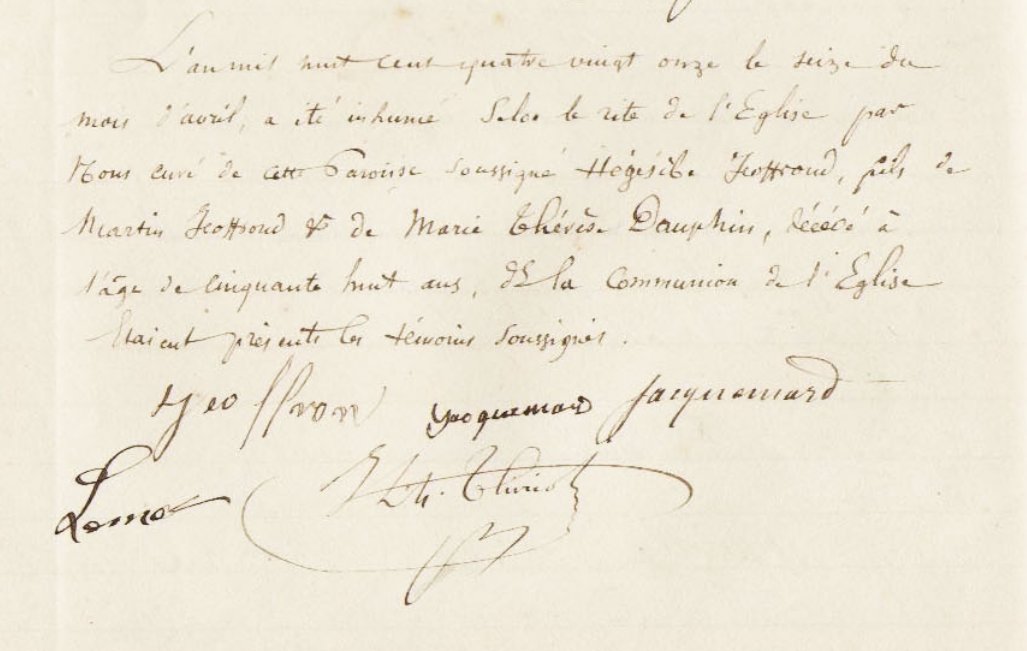 L'an mil huit cent quatre vingt onze le seize du
mois d'avril, a été inhumé Selon le rite de l'Eglise par
Nous curé de cette Paroisse soussigné Hégésibe Jeoffroud, fils de
Martin Jeoffroud & de Marie Thérèse Dauphin, décédé à
l'âge de cinquante huit ans, de la Communion de l'Eglise
Etaient présents les témoins soussignés.
Jacquemard Jacquemard
Th. Thiriot